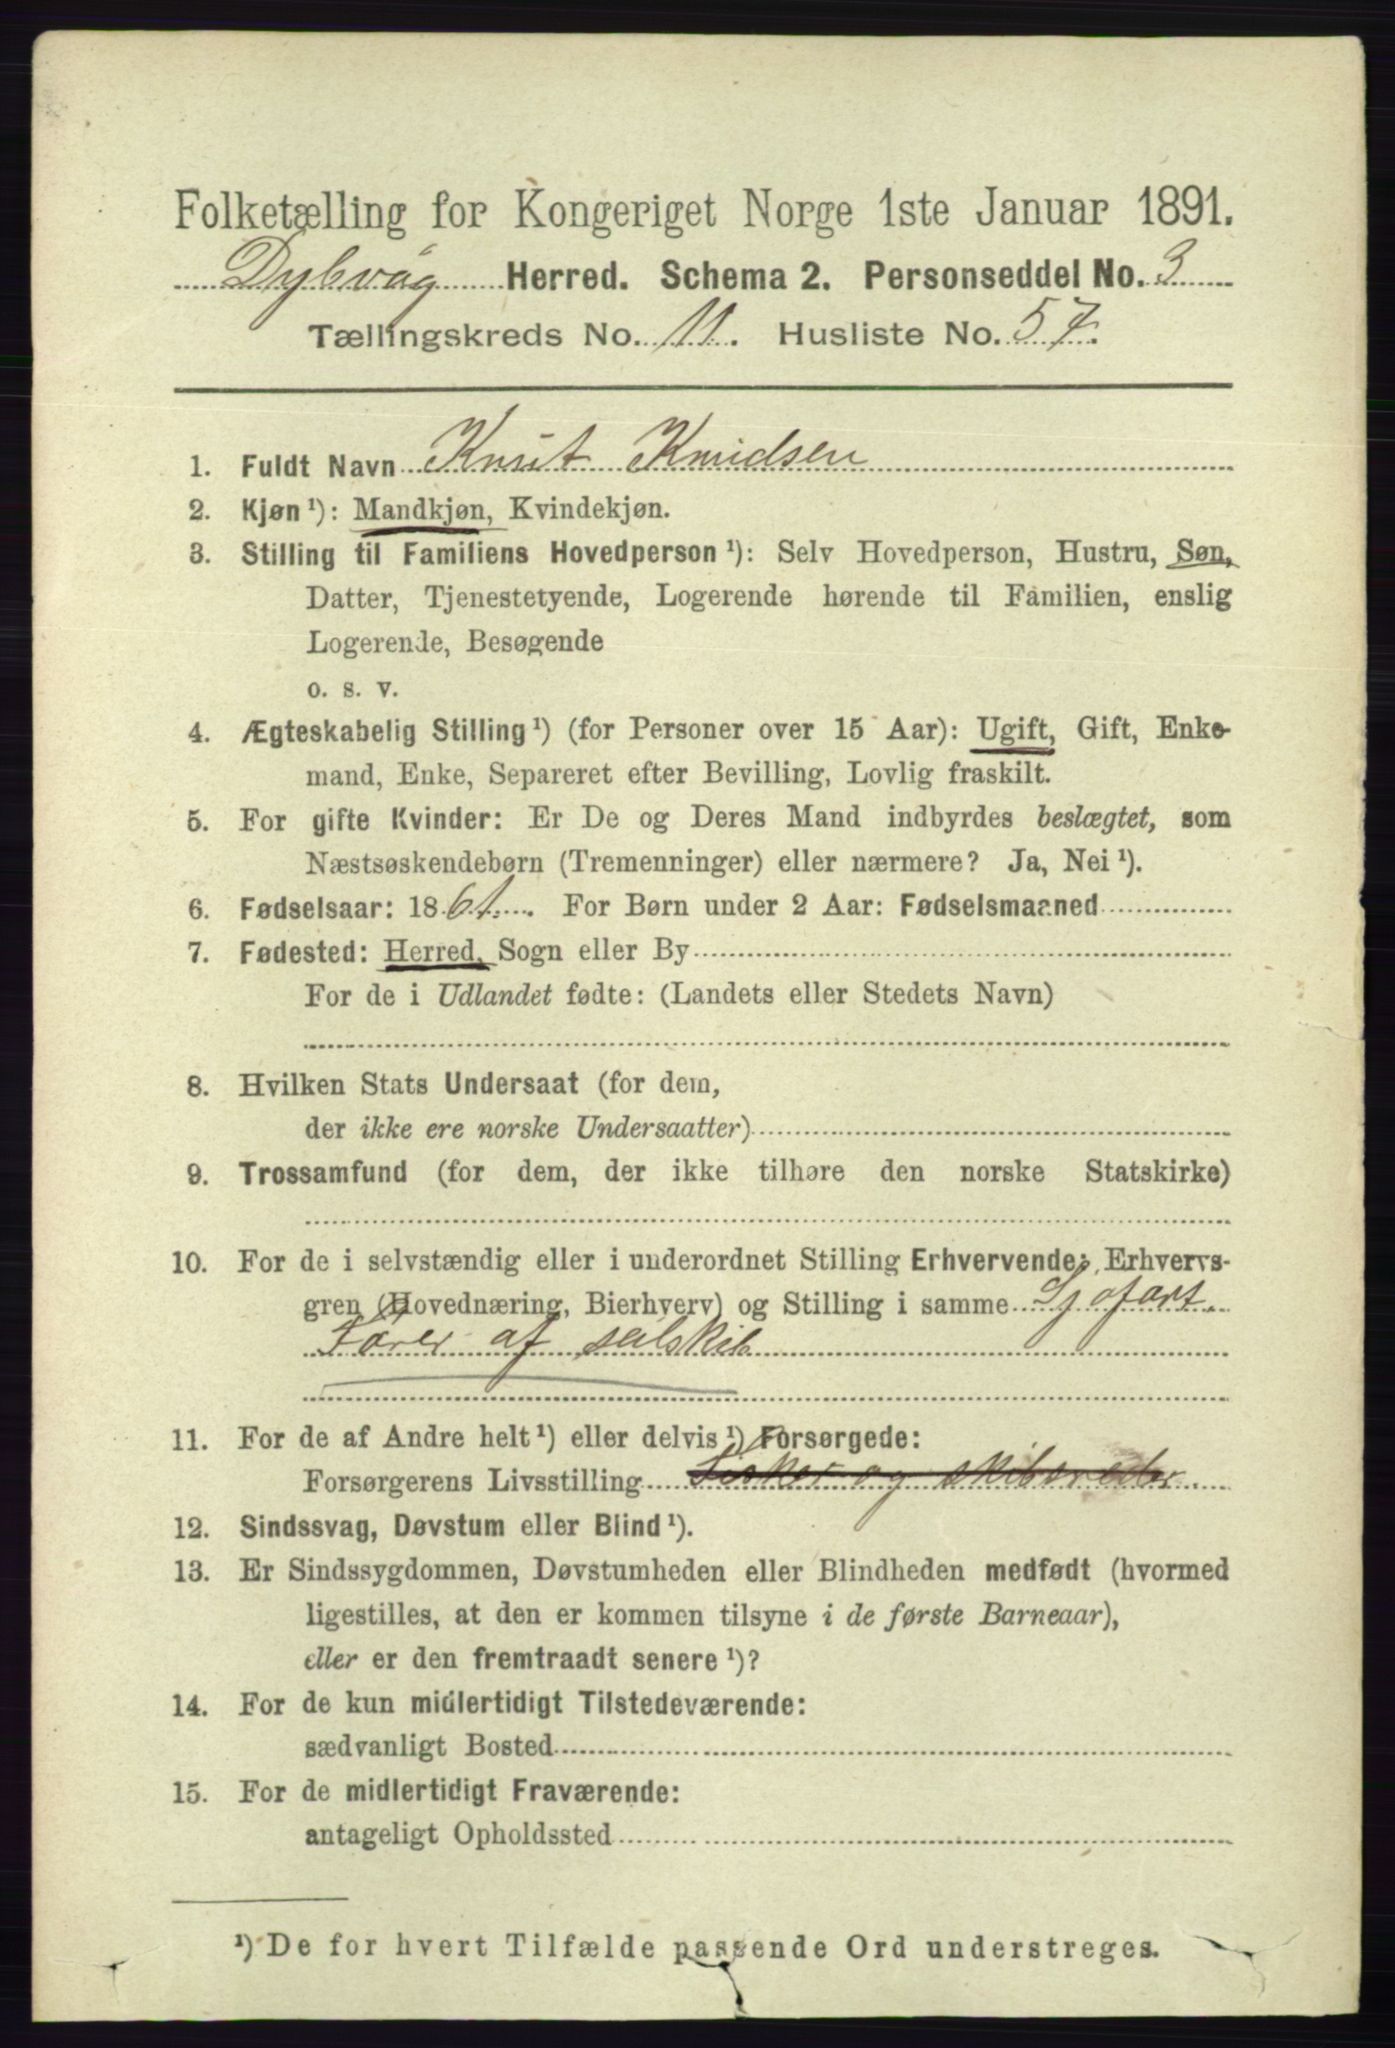 Folketælling for Kongeriget Norge 1ste Januar 1891.
Dybvåg Herred. Schema 2. Personseddel No. 3
Tællingskreds No. 11. Husliste No. 57.
1. Fuldt Navn Knut Knudsen
2. Kjøn ¹): Mandkjøn, Kvindekjøn.
3. Stilling til Familiens Hovedperson ¹): Selv Hovedperson, Hustru, Søn,
Datter, Tjenestetyende, Logerende hørende til Familien, enslig
Logerende, Besøgende
o. s. v.
4. Ægteskabelig Stilling ¹) (for Personer over 15 Aar): Ugift, Gift, Enke-
mand, Enke, Separeret efter Bevilling, Lovlig fraskilt.
5. For gifte Kvinder: Er De og Deres Mand indbyrdes beslægtet, som
Næstsøskendebørn (Tremenninger) eller nærmere? Ja, Nei ¹).
6. Fødselsaar: 1861. For Børn under 2 Aar: Fødselsmaaned
7. Fødested: Herred, Sogn eller By
For de i Udlandet fødte: (Landets eller Stedets Navn)
8. Hvilken Stats Undersaat (for dem,
der ikke ere norske Undersaatter)
9. Trossamfund (for dem, der ikke tilhøre den norske Statskirke)
10. For de i selvstændig eller i underordnet Stilling Erhvervende: Erhvervs-
gren (Hovednæring, Bierhverv) og Stilling i samme Sjøfart.
Fører af seilskib
11. For de af Andre helt ¹) eller delvis ¹) Forsørgede:
Forsørgerens Livsstilling Fisker og skibsreder.
12. Sindssvag, Døvstum eller Blind ¹).
13. Er Sindssygdommen, Døvstumheden eller Blindheden medfødt (hvormed
ligestilles, at den er kommen tilsyne i de første Barneaar),
eller er den fremtraadt senere ¹)?
14. For de kun midlertidigt Tilstedeværende:
sædvanligt Bosted
15. For de midlertidigt Fraværende:
antageligt Opholdssted
¹) De for hvert Tilfælde passende Ord understreges.